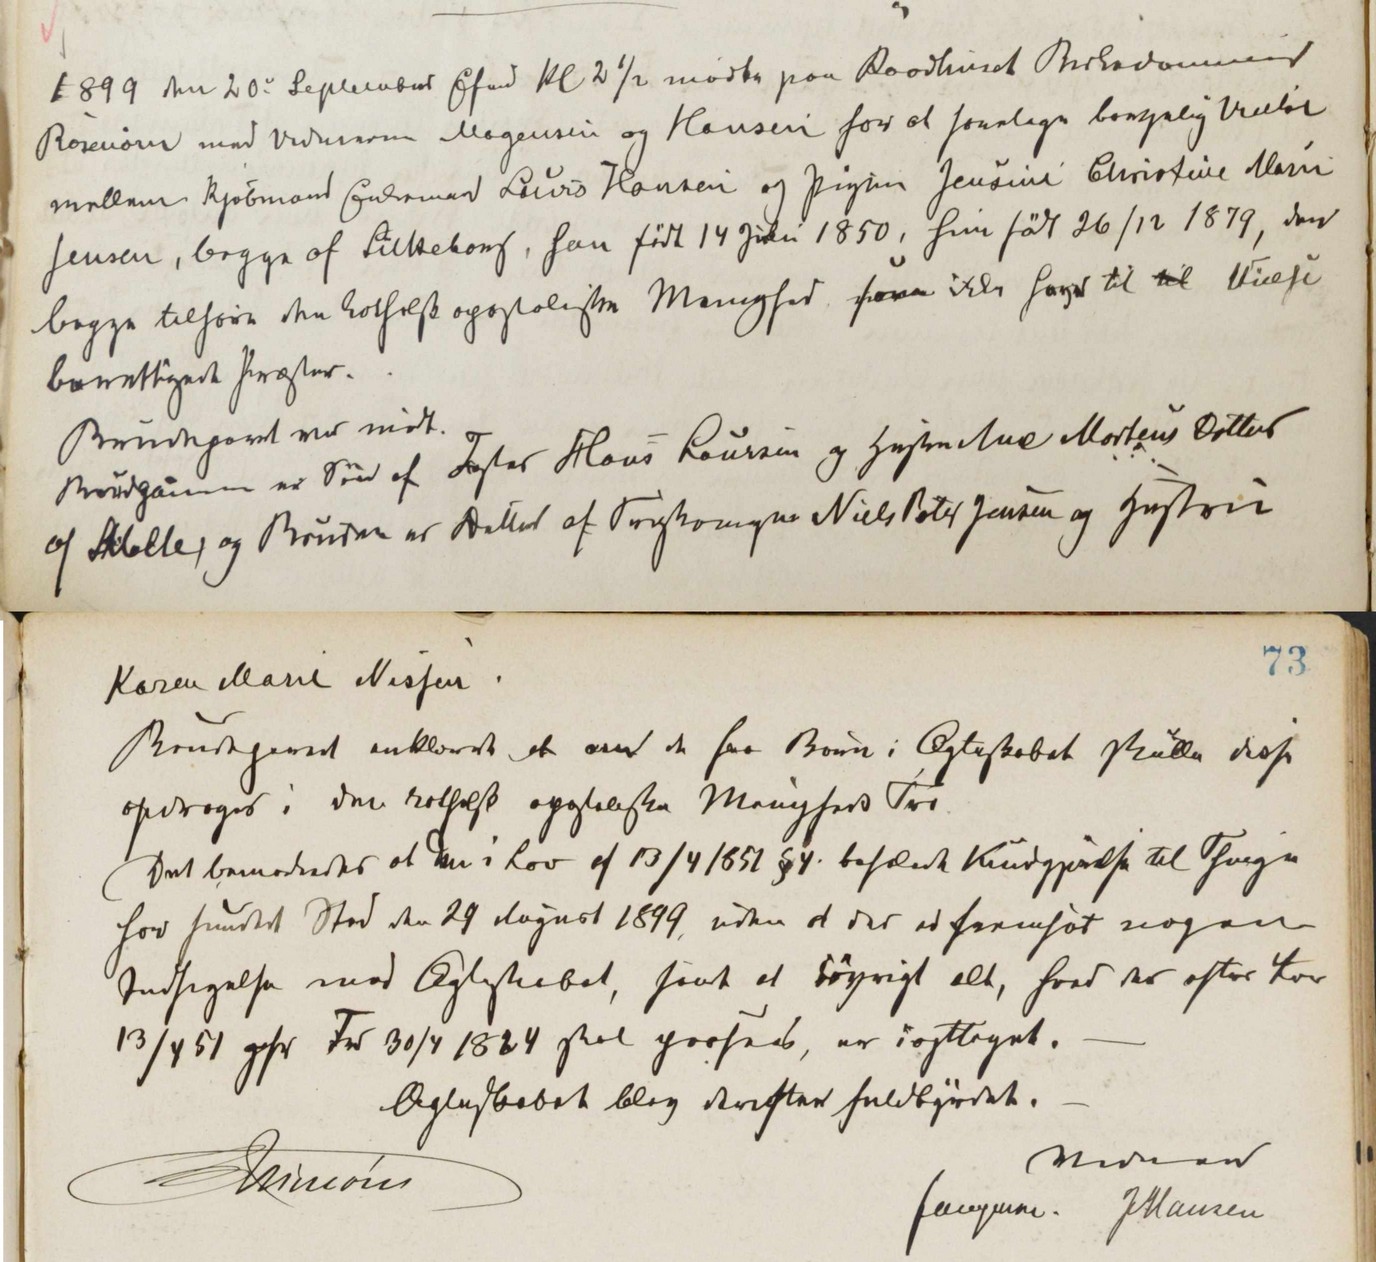 1899 den 20de September Efmd Kl 2 1/2 mødte paa Raadhuset Birkedommer
Rosenørn med Vidnerne Mogensen og Hansen for at foretage borgerlig Vielse
mellem Kjøbmand Enkemand Laurs Hansen og Pigen Jensine Christine Marie
Jensen, begge af Silkeborg, han født 14 Juni 1850, hun født 26/12 1879, der
begge tilhøre den katholsk apostoliske Menighed som ikke har til til Vielse
berettigede Præster.
Brudeparret var mødt.
Brudgommen er Søn af Hans Laursen og Hustru Ane Mortens Datter
af og Bruden er Datter af Niels Peter Jensen og Hustru
73
Karen Marie Nissen.
Brudeparret erklærede at om de faa Børn i Ægteskabet skulle disse
opdrages i den katholsk apostoliske Menigheds Tro.
Det bemærkedes at den i Lov af 13/4 1851 § 4. befalede Kundgjørelse til Thinge
har fundet Sted den 29 August 1899, uden at der er fremsat nogen
Indsigelse mod Ægteskabet, samt at iøvrigt alt, hvad der efter Lov
13/4 51 Fr 30/4 1824 skal passes, er iagttaget.
Ægteskabet blev derefter fuldbyrdet.
Rosenørn
Vidner
JHansen